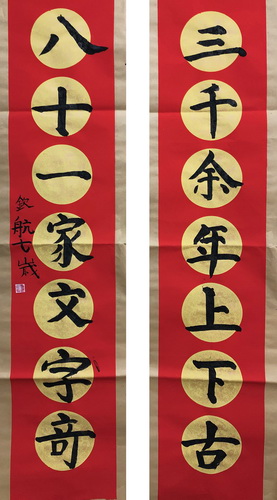 三千余年上下古
八十一家文字奇
钦航七岁